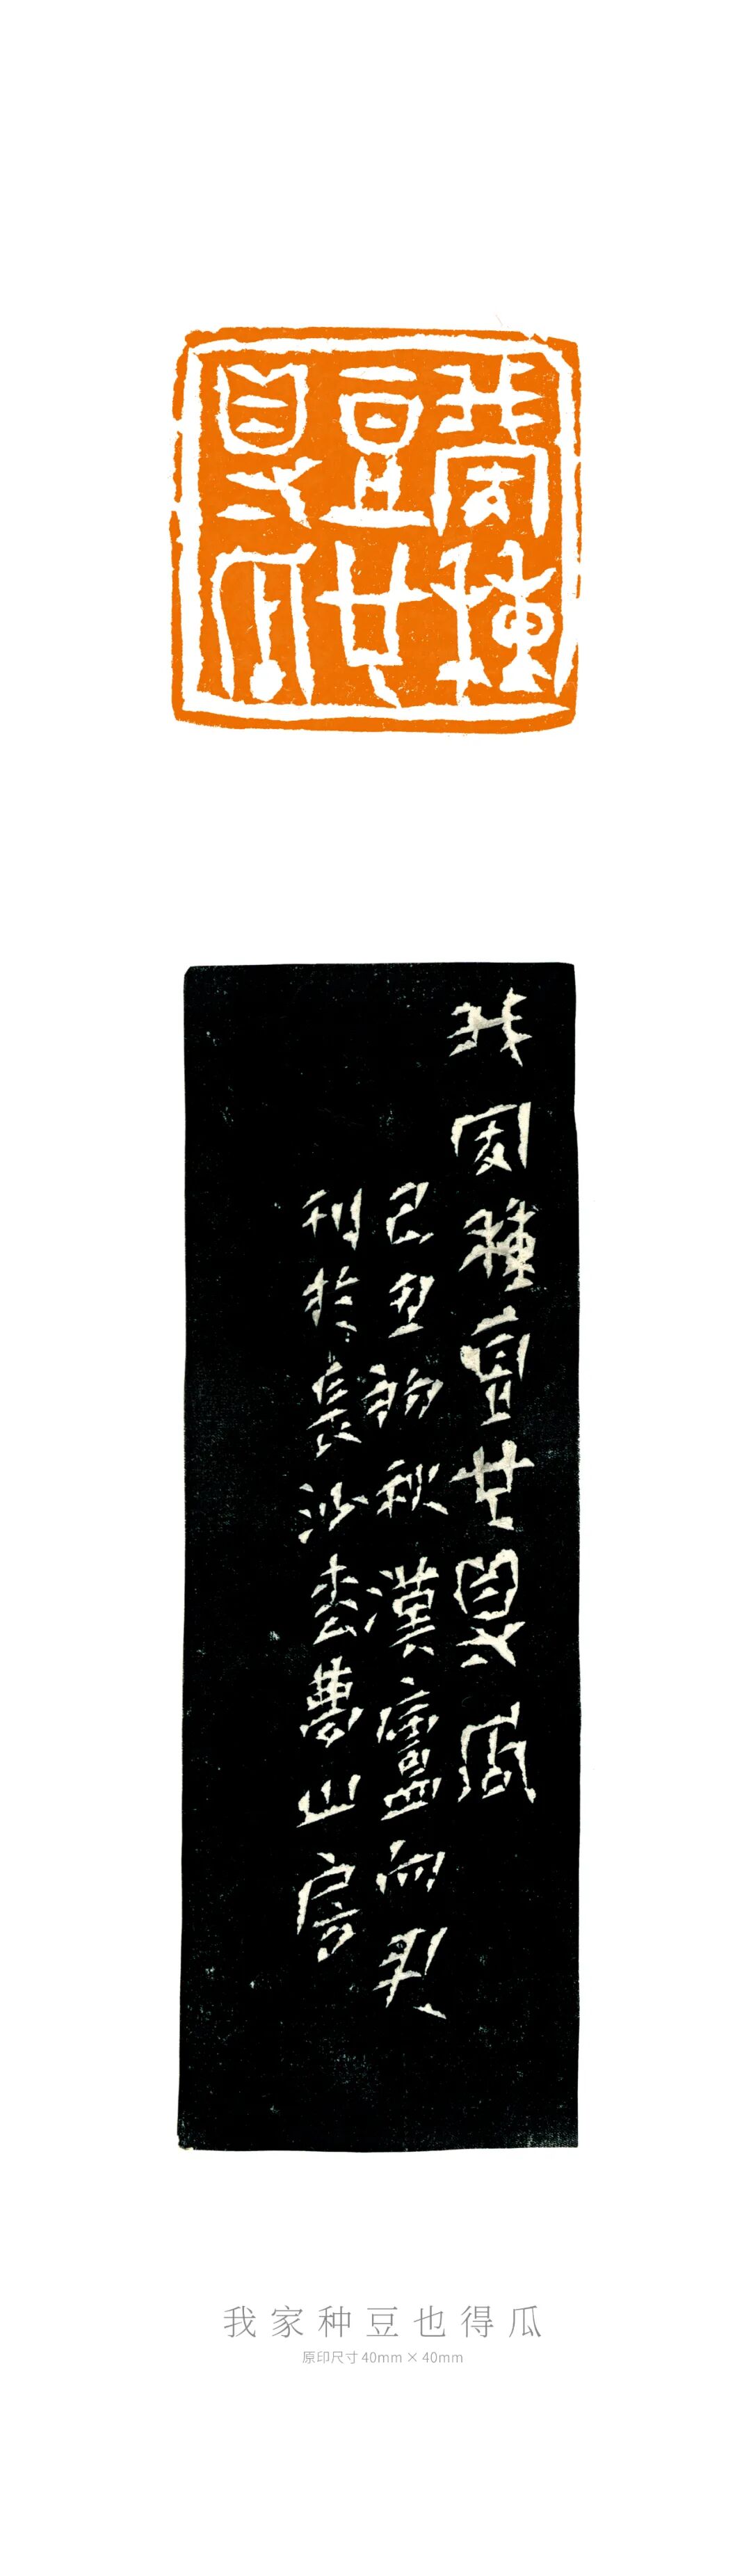 我家種
豆也
得瓜
我家種豆也得瓜
己丑初秋漢廬
刊於長沙山房
我家种豆也得瓜
原印尺寸 40mm × 40mm